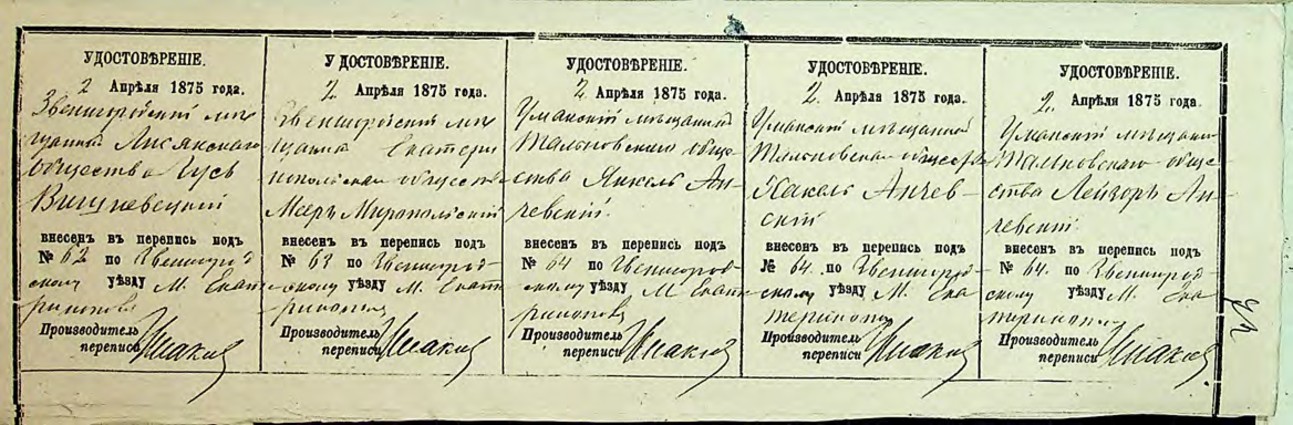 УДОСТОВѢРЕНІЕ.
2 Апрѣля 1875 года.
Звенигородскій мѣ
щанинъ Лисянскаго
общества Гусь
Вишневецкій
внесенъ въ перепись подъ
№ 62 по Звенигород
скому уѣзду М. Екате
ринополь
Производитель
переписи
УДОСТОВѢРЕНІЕ.
2 Апрѣля 1875 года.
Звенигородскій мѣ
щанинъ Екатери
нопольскаго общества
Мееръ Миропольскій
внесенъ въ перепись подъ
№ 63 по Звенигород-
скому уѣзду М. Екате
ринополь
Производитель
переписи
УДОСТОВѢРЕНІЕ.
2 Апрѣля 1875 года.
Уманскій мѣщанинъ
Тальновскаго обще-
ства Янкель Ан-
чевскій.
внесенъ въ перепись подъ
№ 64 по Звенигород-
скому уѣзду М. Екате
ринополь
Производитель
переписи
УДОСТОВѢРЕНІЕ.
2. Апрѣля 1875 года.
Уманскій мѣщанинъ
Тальновскаго общества
Анчев-
скій
внесенъ въ перепись подъ
№ 64. по Звенигород-
скому уѣзду М. Ека
теринополь
Производитель
переписи
УДОСТОВѢРЕНІЕ.
2. Апрѣля 1875 года.
Уманскій мѣщанинъ
Тальновскаго обще
ства Лейзоръ Ан-
чевскій.
внесенъ въ перепись подъ
№ 64. по Звенигород-
скому уѣзду М. Ека
теринополь
Производитель
переписи